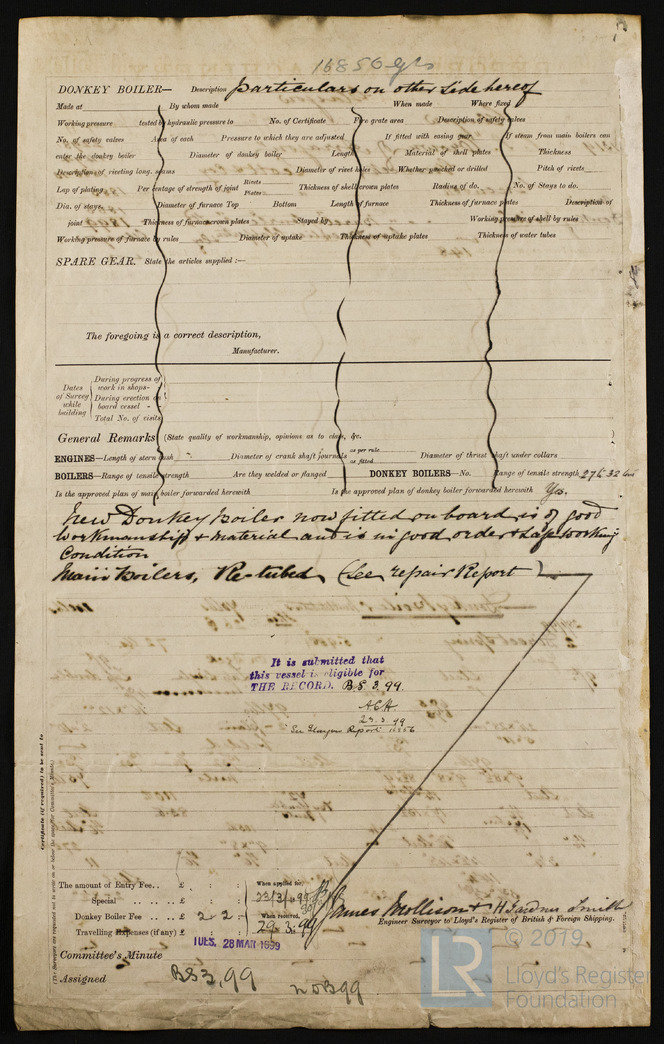 16856 Gls
DONKEY BOILER— Description particulars on other side hereof
Made at By whom made When made Where fixed
Working pressure tested by hydraulic pressure to No. of Certificate Fire grate area Description of safety valves
No. of safety valves Area of each Pressure to which they are adjusted If fitted with easing gear If steam from main boilers can
enter the donkey boiler Diameter of donkey boiler Length Material of shell plates Thickness
Description of riveting long. seams Diameter of rivet holes Whether punched or drilled Pitch of rivets
Lap of plating Per centage of strength of joint Rivets Plates Thickness of shell crown plates Radius of do. No. of Stays to do.
Dia. of stays. Diameter of furnace Top Bottom Length of furnace Thickness of furnace plates Description of
joint Thickness of furnace crown plates Stayed by Working pressure of shell by rules
Working pressure of furnace by rules Diameter of uptake Thickness of uptake plates Thickness of water tubes
SPARE GEAR. State the articles supplied :—
The foregoing is a correct description,
Manufacturer.
Dates of Survey while building
During progress of work in shops-
During erection on board vessel -
Total No. of visits
General Remarks (State quality of workmanship, opinions as to class, &c.
ENGINES—Length of stern bush Diameter of crank shaft journals as per rule as fitted Diameter of thrust shaft under collars
BOILERS—Range of tensile strength Are they welded or flanged DONKEY BOILERS—No. Range of tensile strength 27 & 32 tons
Is the approved plan of main boiler forwarded herewith Is the approved plan of donkey boiler forwarded herewith Yes.
New Donkey Boiler now fitted on board is of good
workmanship & material and is in good order & safe working
Condition
Main Boilers, Re-tubed, (See repair Report)
It is submitted that
this vessel is eligible for
THE RECORD. BS. 3. 99
23. 3. 99
See Glasgow Report 16856
Certificate (if required) to be sent to
(The Surveyors are requested not to write on or below the space for Committee's Minute.)
The amount of Entry Fee.. £ : : When applied for,
Special .. .. .. £ : : 23/3/99
Donkey Boiler Fee .. .. £ 2 : 2 : When received,
Travelling Expenses (if any) £ : : 29. 3. 99
James Mollison & H Gardner Smith
Engineer Surveyor to Lloyd's Register of British & Foreign Shipping.
TUES. 28 MAR 1899
Committee's Minute
Assigned BS 3, 99
NDB 99
LR © 2019
Lloyd's Register
Foundation